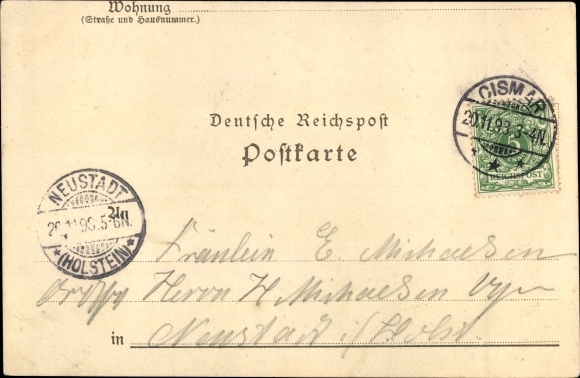 Wohnung
(Straße und Hausnummer.)
CISMAR
20.11.99. 3-4N.
5
REICHSPOST
Deutsche Reichspost
Postkarte
NEUSTADT
20.11.99. 5-6N.
* (HOLSTEIN) *
An
Fräulein E Michaelsen
Herrn H Michaelsen
in Neustadt i/Holst